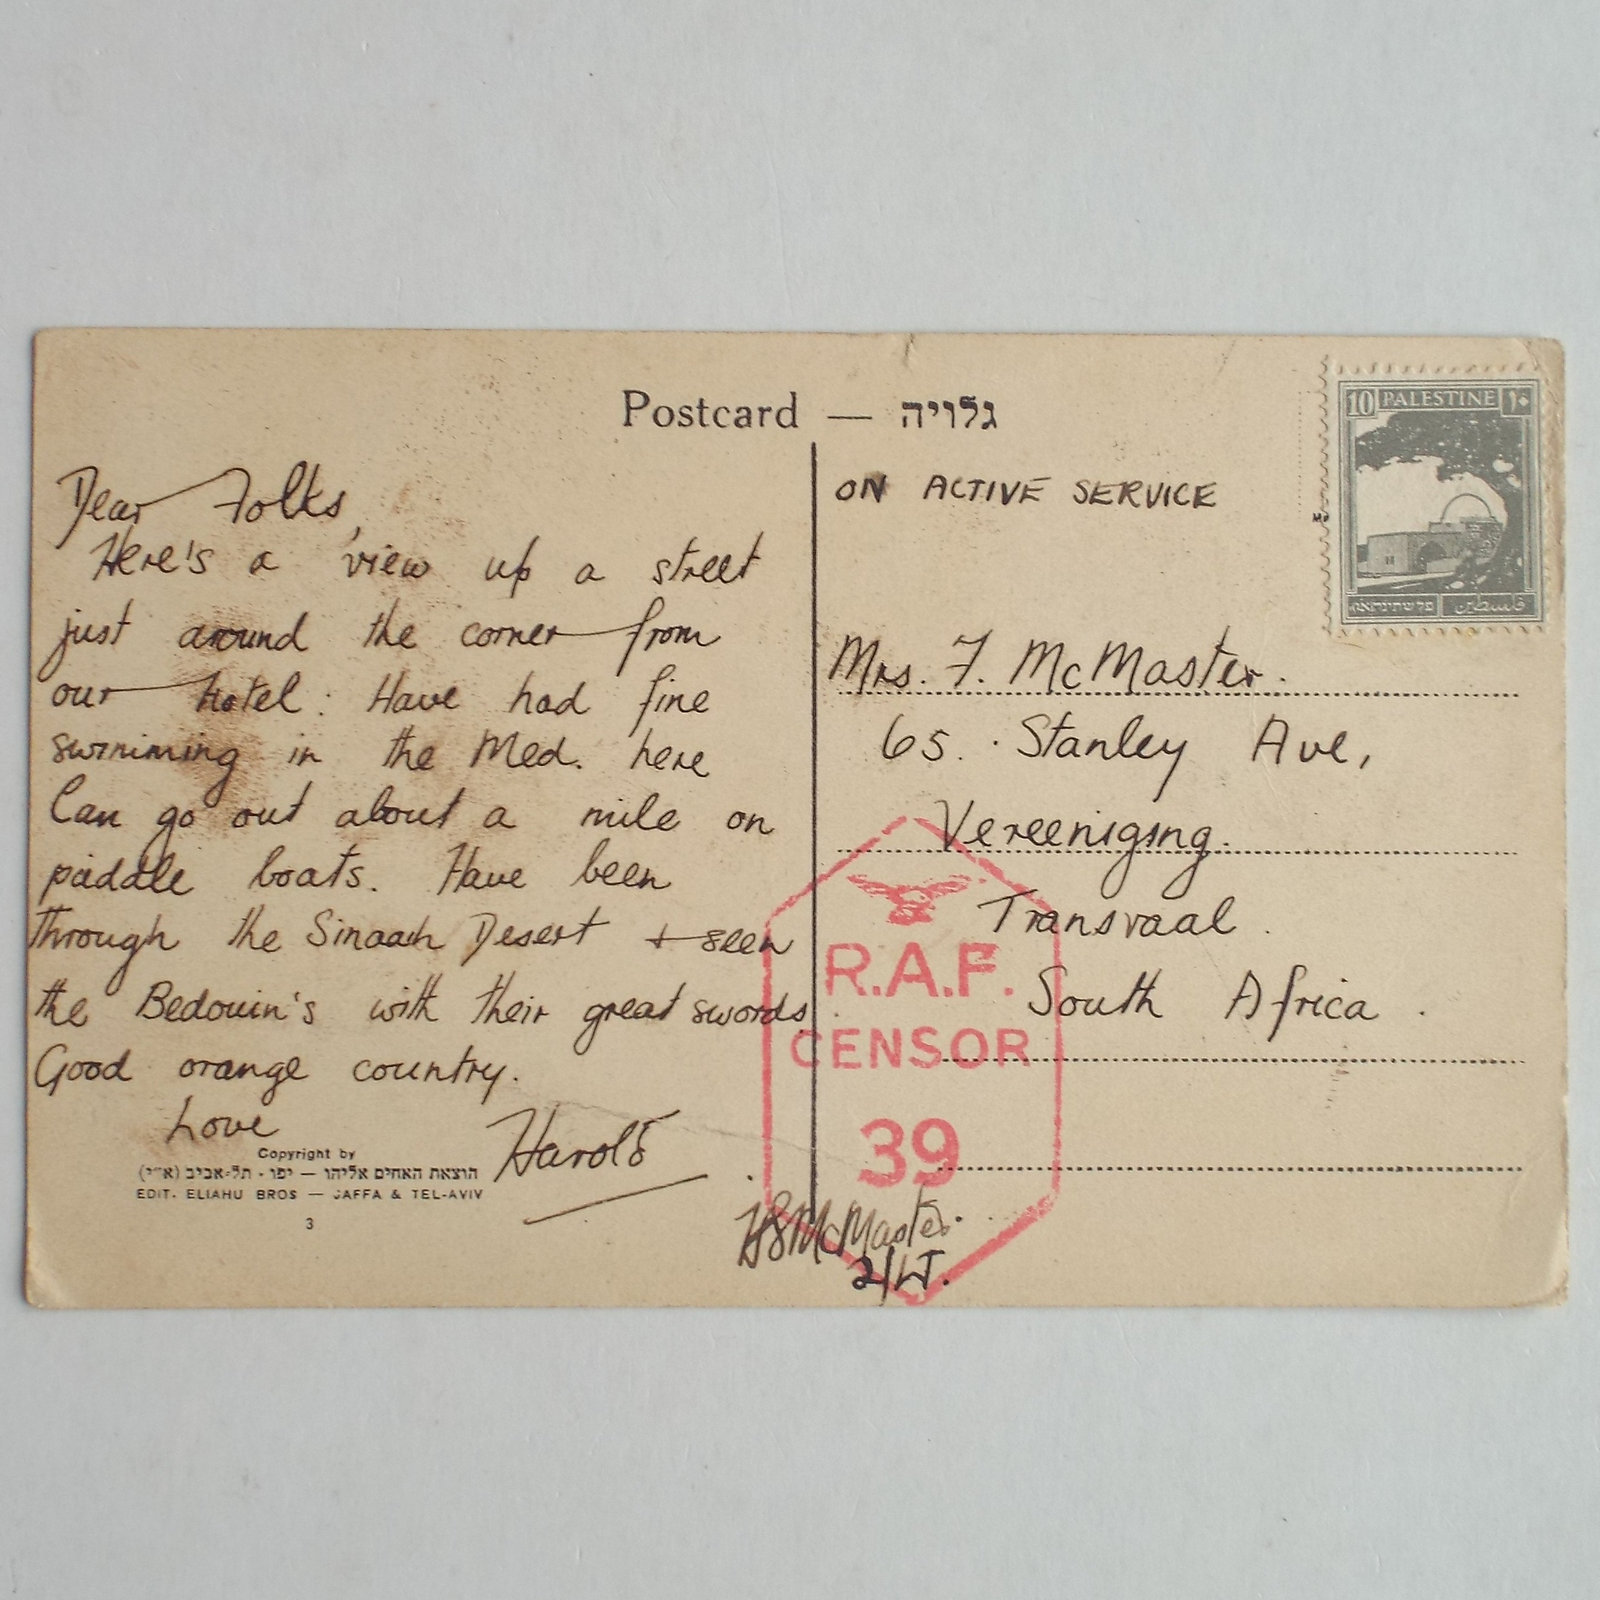 Postcard — גלויה
Dear Folks,
Here's a view up a street
just around the corner from
our hotel. Have had fine
swimming in the Med. here
Can go out about a mile on
paddle boats. Have been
through the Sinaah Desert + seen
the Bedouin's with their great swords.
Good orange country.
Love
Harold
Copyright by
הוצאת האחים אליהו — יפו - תל-אביב (א״י)
EDIT. ELIAHU BROS — JAFFA & TEL-AVIV
3
10 PALESTINE ١٠
פלשתינה א״י فلسطين
ON ACTIVE SERVICE
Mrs. F. McMaster.
65. Stanley Ave,
Vereeniging.
Transvaal.
South Africa.
R.A.F.
CENSOR
39
HSMcMaster.
2/LT.